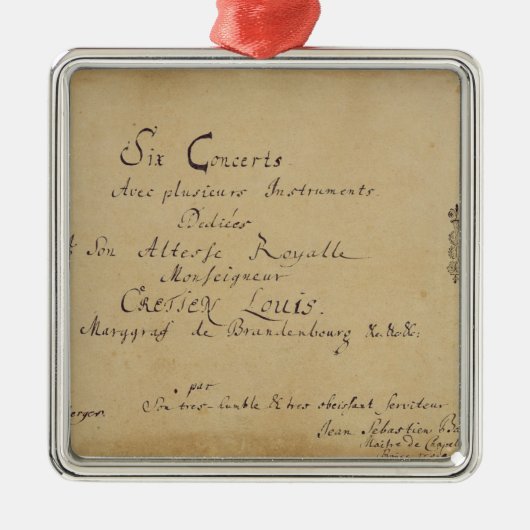 Six Concerts
Avec plusieurs Instruments.
Dediées
Son Altesse Royalle
Monseigneur
CRETIEN LOUIS.
Marggraf de Brandenbourg &c.&c.&c:
par
Son tres-humble & tres obeissant serviteur
Jean Sebastien Ba
Maitre de Chapel